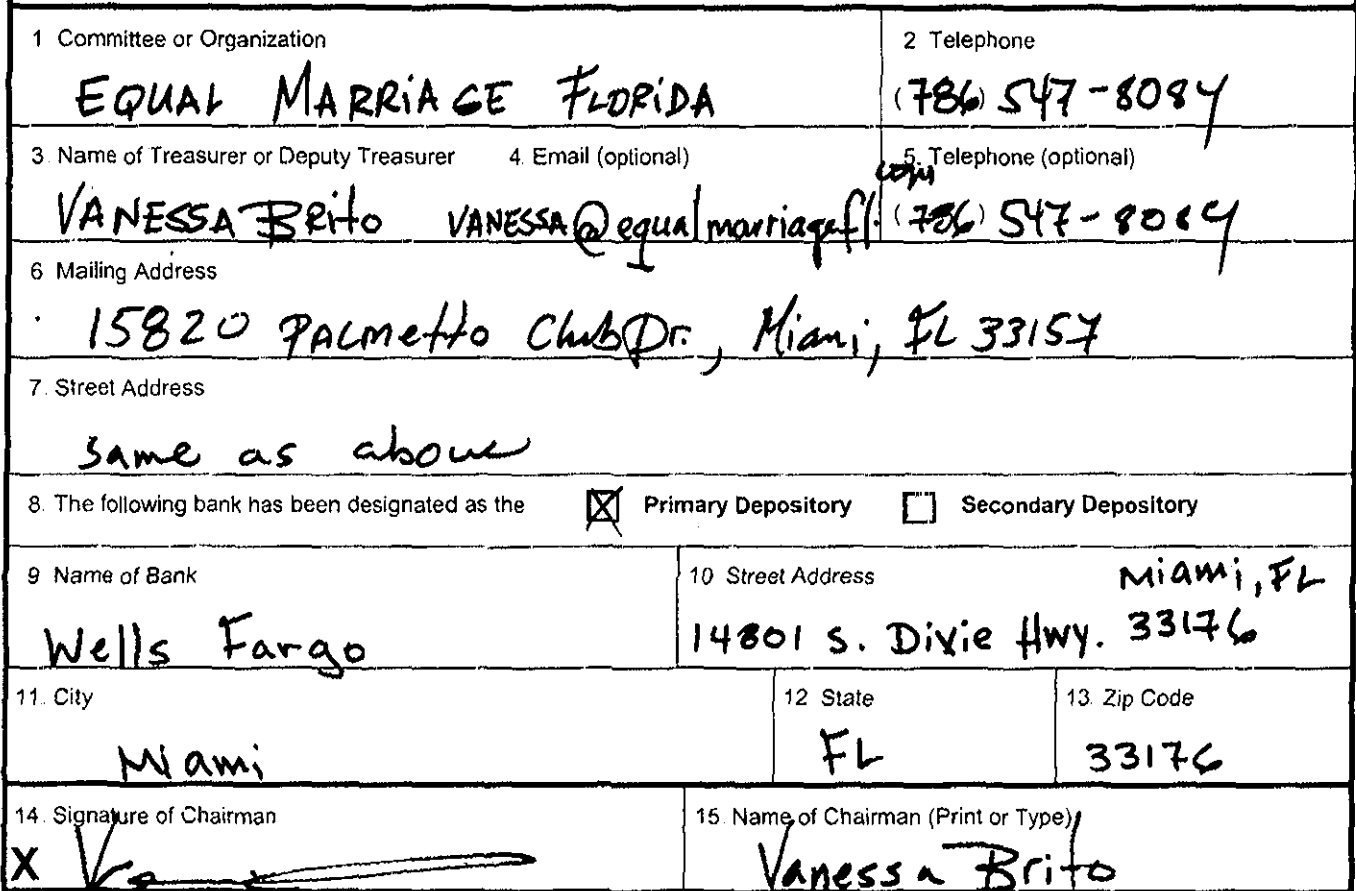 1 Committee or Organization
EQUAL MARRIAGE FLORIDA
2 Telephone
(786) 547-8084
3. Name of Treasurer or Deputy Treasurer
VANESSA Brito
4. Email (optional)
VANESSA@equalmarriagefl.com
5. Telephone (optional)
(786) 547-8084
6 Mailing Address
15820 Palmetto Club Dr., Miami, FL 33157
7. Street Address
same as above
8. The following bank has been designated as the Primary Depository Secondary Depository
9 Name of Bank
Wells Fargo
10 Street Address
Miami, FL
14801 S. Dixie Hwy. 33176
11. City
Miami
12 State
FL
13. Zip Code
33176
14. Signature of Chairman
X
15. Name of Chairman (Print or Type)
Vanessa Brito